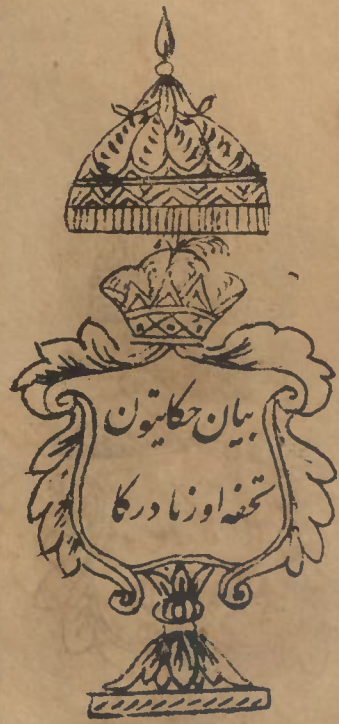 بیان حکایتون
تحفہ اور نادر کا